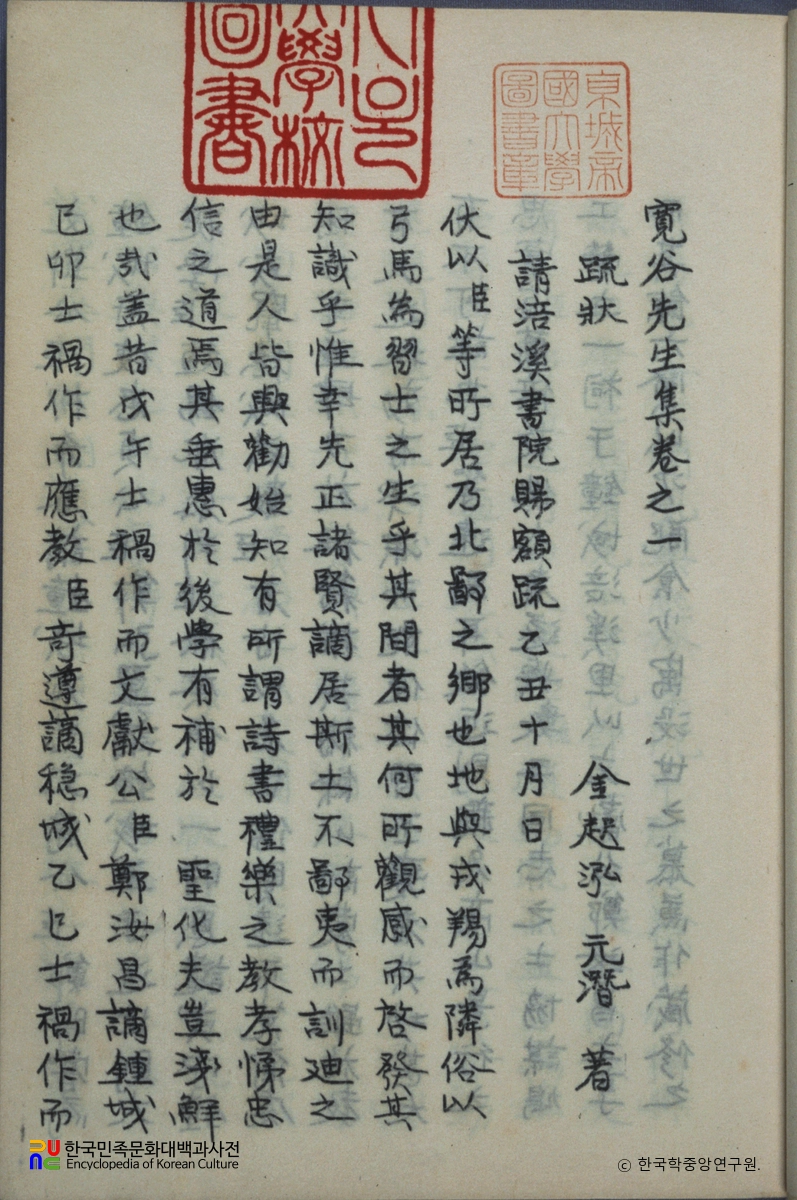 寬谷先生集卷之一
疏狀
金起泓 元濳 著
請涪溪書院賜額疏 乙丑十月日
伏以臣等所居乃北鄙之鄉也地與戎羯為隣俗以
弓馬為習士之生乎其間者其何所觀感而啓發其
知識乎惟幸先正諸賢謫居斯土不鄙夷而訓迪之
由是人皆興勸始知有所謂詩書禮樂之教孝悌忠
信之道焉其垂惠於後學有補於 聖化夫豈淺鮮
也㢤盖昔戊午士禍作而文獻公臣鄭汝昌謫鍾城
己卯士禍作而應教臣奇遵謫穏城乙巳士禍作而
京城帝
國大學
圖書章
學校
圖書
한국민족문화대백과사전
Encyclopedia of Korean Culture
ⓒ 한국학중앙연구원.